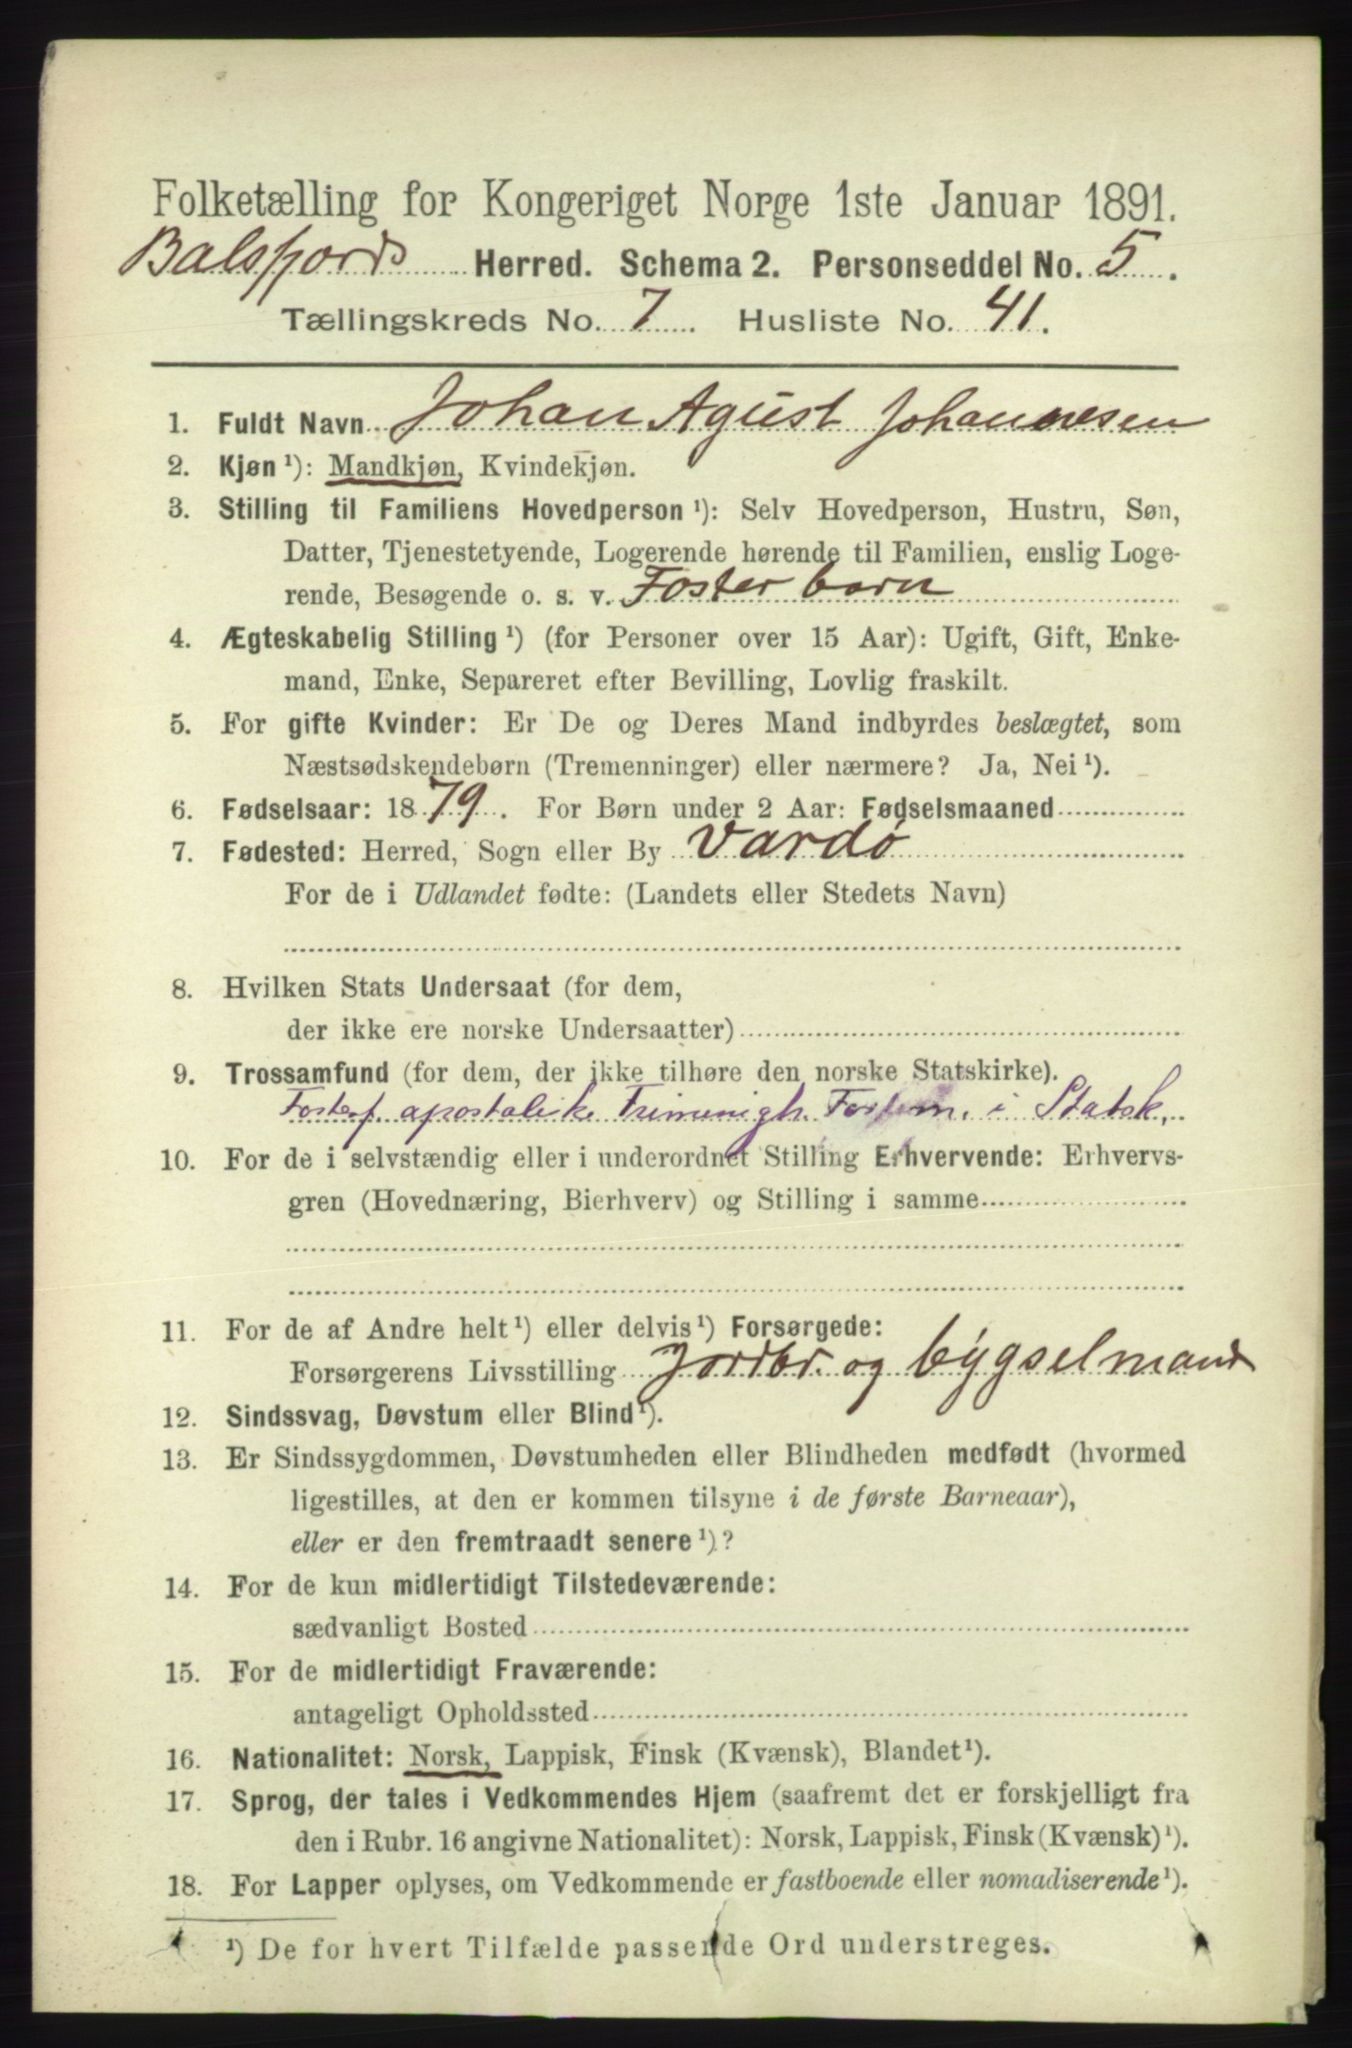 Folketælling for Kongeriget Norge 1ste Januar 1891.
Balsfjords Herred. Schema 2. Personseddel No. 5.
Tællingskreds No. 7. Husliste No. 41.
1. Fuldt Navn Johan Agust Johannesen
2. Kjøn ¹): Mandkjøn, Kvindekjøn.
3. Stilling til Familiens Hovedperson ¹): Selv Hovedperson, Hustru, Søn,
Datter, Tjenestetyende, Logerende hørende til Familien, enslig Loge-
rende, Besøgende o. s. v. Foster barn
4. Ægteskabelig Stilling ¹) (for Personer over 15 Aar): Ugift, Gift, Enke-
mand, Enke, Separeret efter Bevilling, Lovlig fraskilt.
5. For gifte Kvinder: Er De og Deres Mand indbyrdes beslægtet, som
Næstsødskendebørn (Tremenninger) eller nærmere? Ja, Nei ¹).
6. Fødselsaar: 1879. For Børn under 2 Aar: Fødselsmaaned
7. Fødested: Herred, Sogn eller By Vardø
For de i Udlandet fødte: (Landets eller Stedets Navn)
8. Hvilken Stats Undersaat (for dem,
der ikke ere norske Undersaatter)
9. Trossamfund (for dem, der ikke tilhøre den norske Statskirke).
Fosterf. apostolisk Frimenigh. Fosterm. i Statsk.
10. For de i selvstændig eller i underordnet Stilling Erhvervende: Erhvervs-
gren (Hovednæring, Bierhverv) og Stilling i samme
11. For de af Andre helt ¹) eller delvis ¹) Forsørgede:
Forsørgerens Livsstilling Jordbr. og bygselmand
12. Sindssvag, Døvstum eller Blind ¹).
13. Er Sindssygdommen, Døvstumheden eller Blindheden medfødt (hvormed
ligestilles, at den er kommen tilsyne i de første Barneaar),
eller er den fremtraadt senere ¹)?
14. For de kun midlertidigt Tilstedeværende:
sædvanligt Bosted
15. For de midlertidigt Fraværende:
antageligt Opholdssted
16. Nationalitet: Norsk, Lappisk, Finsk (Kvænsk), Blandet ¹).
17. Sprog, der tales i Vedkommendes Hjem (saafremt det er forskjelligt fra
den i Rubr. 16 angivne Nationalitet): Norsk, Lappisk, Finsk (Kvænsk) ¹).
18. For Lapper oplyses, om Vedkommende er fastboende eller nomadiserende ¹).
¹) De for hvert Tilfælde passende Ord understreges.